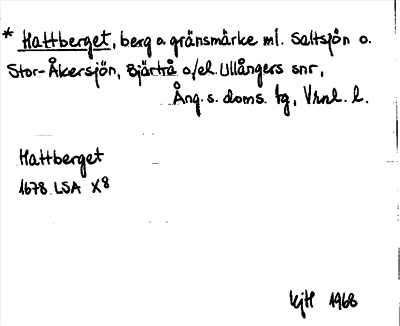 * Hattberget, berg o. gränsmärke ml. Saltsjön o.
Stor-Åkersjön, Bjärtrå o/el. Ullångers snr,
Ång. s. doms. tg, Vrnl. l.
Hattberget
1678 LSA X8
kjH 1968